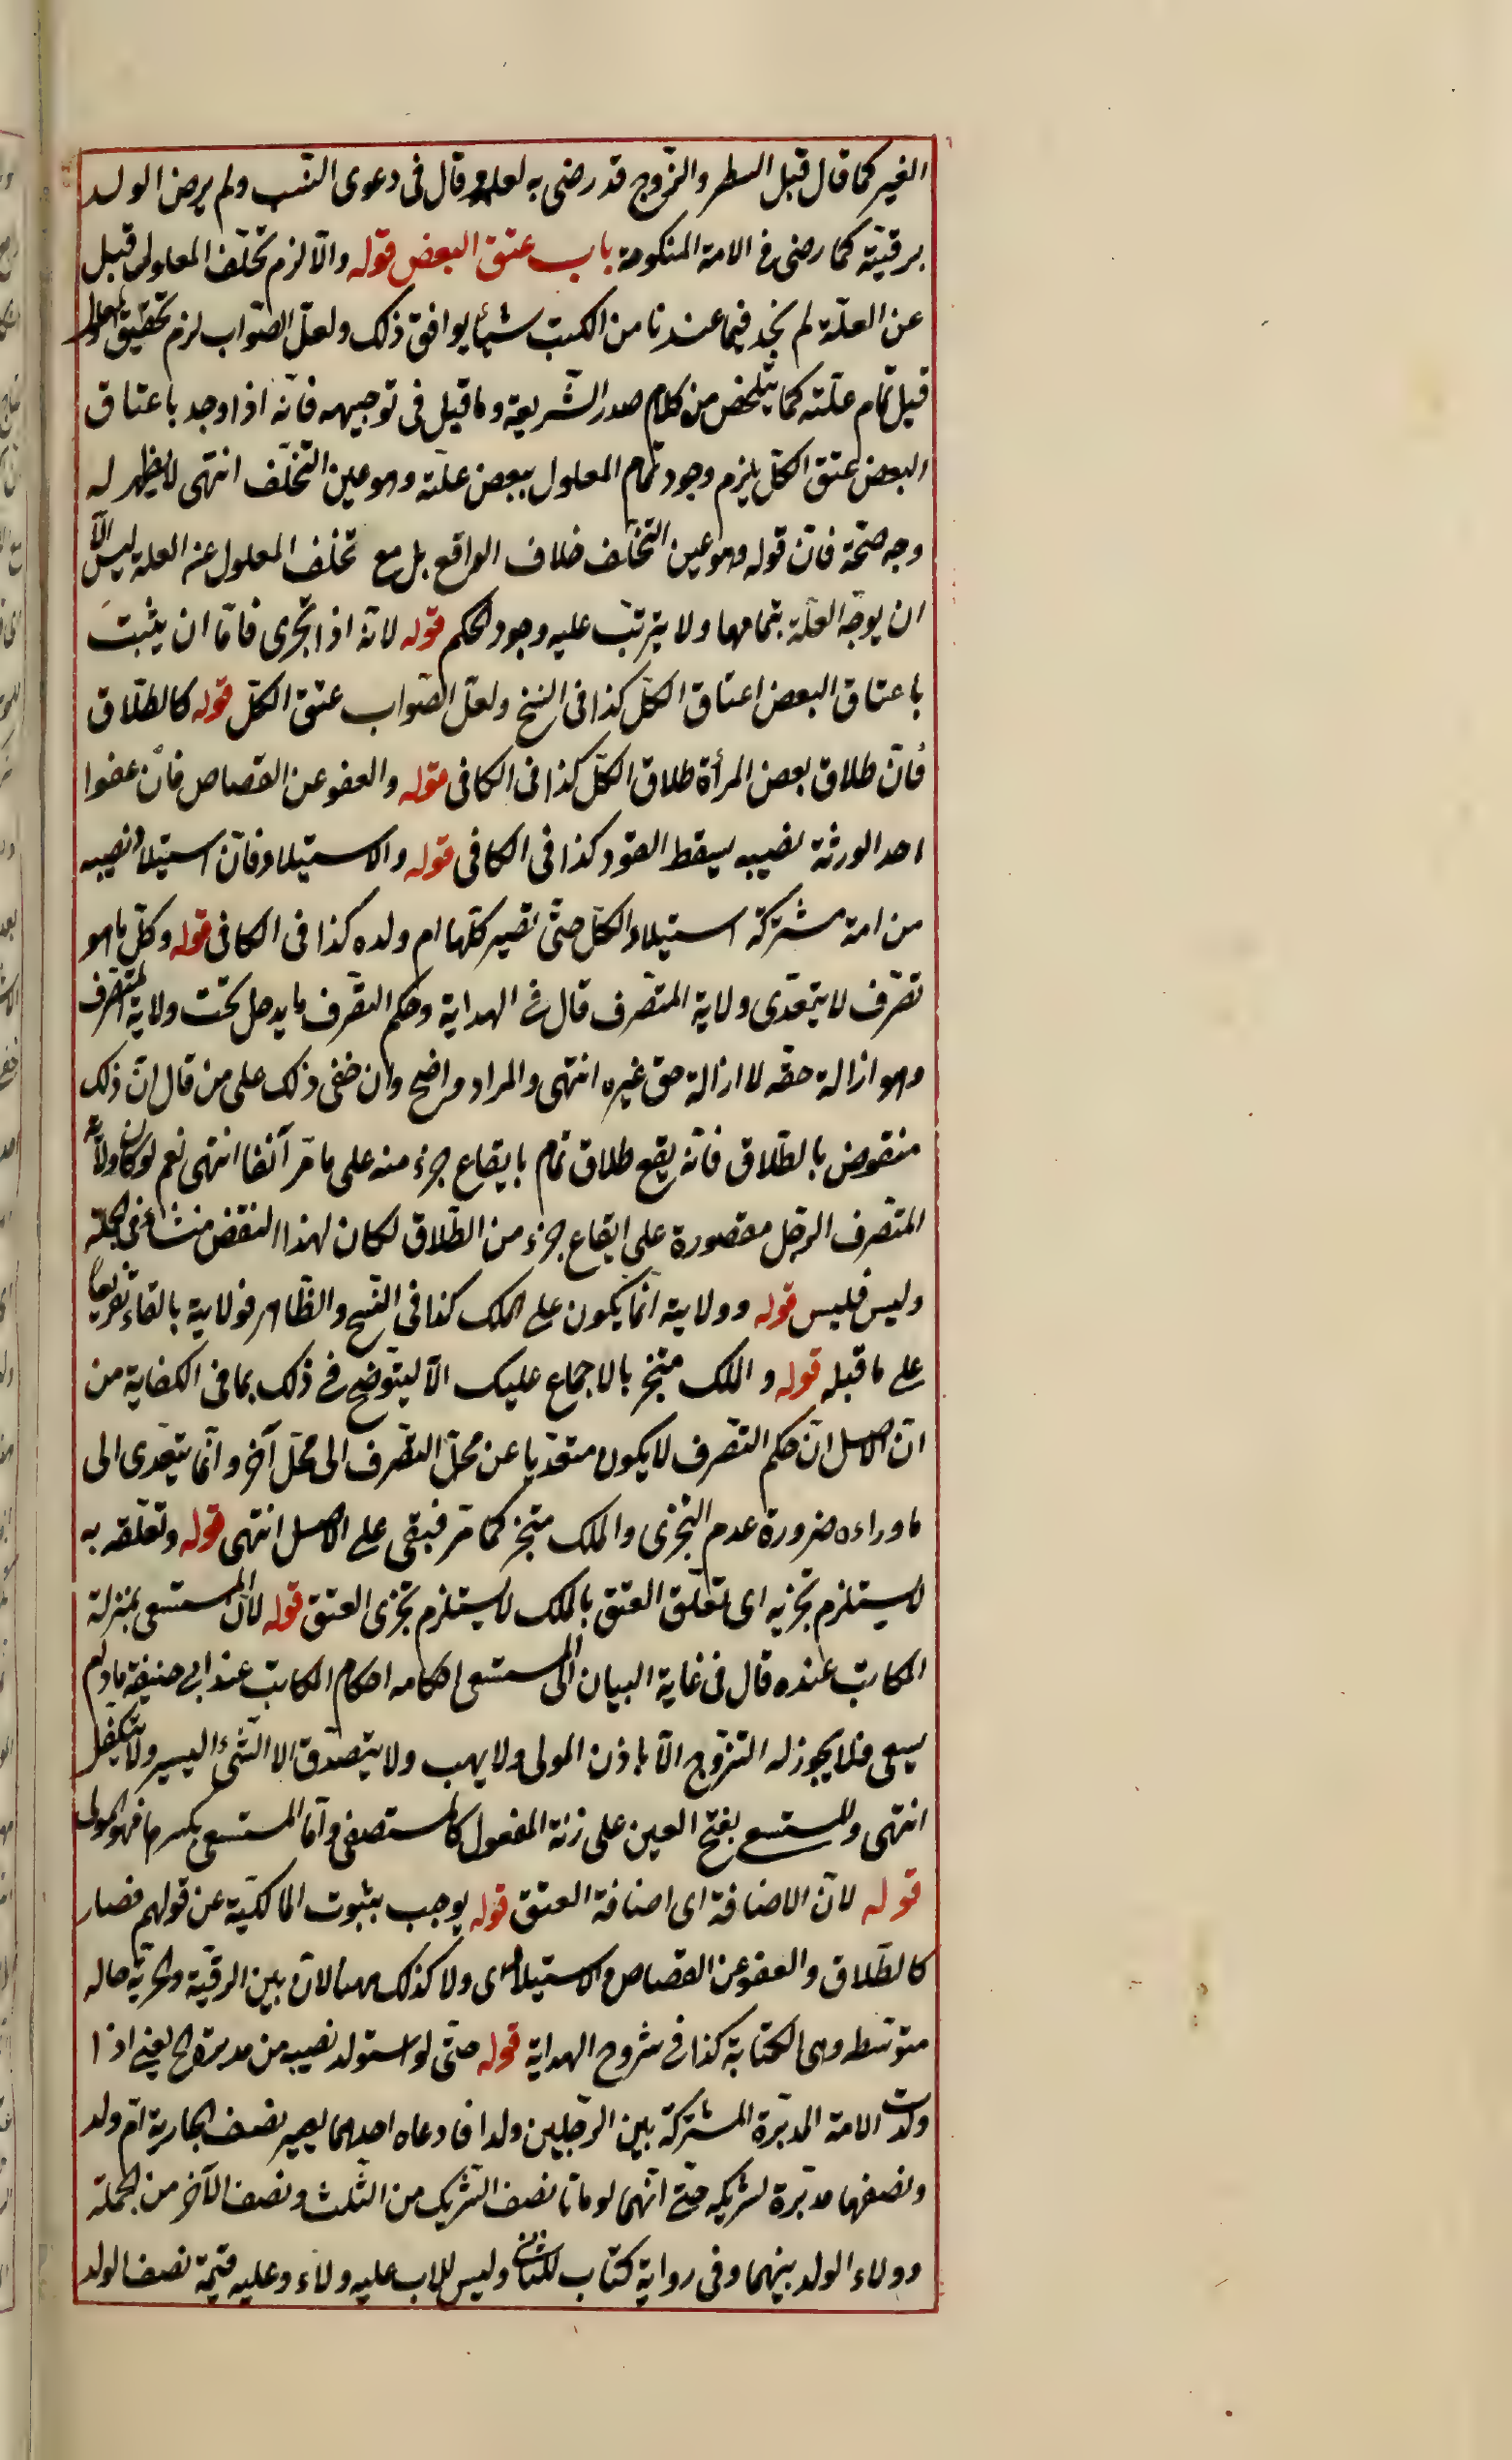 الغير كما قال قبل السطر والتزوج قد رضى به لعله وقال فى دعوى النسب ولم يرض الولد
برقيّته كما رضى فى الامة المنكوحة باب عتق البعض قوله والّا لزم تخلّف المعلول قيل
عن العلّة لم نجد فيما عندنا من الكتب شيئا يوافق ذلك ولعلّ الصّواب لزم تحقيق المعلول
قبل تمام علّته كما يتلخّص من كلام صدر الشّريعة وما قيل فى توجيهه فانّه اذا وجد باعتاق
البعض عتق الكلّ يلزم وجود تمام المعلول ببعض علّته وهو عين التّخلّف انتهى لا يظهر له
وجه صحّة فانّ قوله وهو عين التّخلّف خلاف الواقع بل مع تخلف المعلول عن العلة ليس الّا
ان يوجد العلّة بتمامها ولا يترتّب عليه وجود الحكم قوله لانّه اذا تجزى فامّا ان يثبت
باعتاق البعض اعتاق الكلّ كذا فى النسخ ولعلّ الصّواب عتق الكلّ قوله كالطلاق
فانّ طلاق بعض المرأة طلاق الكلّ كذا فى الكافى قوله والعفو عن القصاص فانّ عفوا
احد الورثة نصيبه يسقط القود كذا فى الكافى قوله والاستيلاد فانّ استيلاد نصيبه
من امة مشتركة استيلاد الكلّ حتّى تصير كلّها ام ولده كذا فى الكافى قوله وكلّ ما هو
تصرّف لا يتعدّى ولاية المتصّرف قال فى الهداية وحكم التصّرف ما يدخل تحت ولاية المتصرف
وهو ازالة حقّه لا ازالة حق غيره انتهى والمراد واضح وان خفى ذلك على من قال انّ ذلك
منقوض بالطّلاق فانّه يقع طلاق تمام بايقاع جزء منه على ما مرّ آنفا انتهى نعم لو كان ولاية
المتصّرف الرجل مقصورة على ايقاع جزء من الطّلاق لكان لهذا النقض منشأ فى الجملة
وليس فليس قوله وولايته انّما يكون على الملك كذا فى النّسخ والظّاهر فولايته بالفاء تفريعا
على ما قبله قوله والملك متجزّ بالاجماع عليك الّا ليتوضّح فى ذلك بما فى الكفاية من
انّ الاصل انّ حكم التصّرف لا يكون متعدّيا عن محلّ التصّرف الى محلّ آخر وانّما يتعدى الى
ما وراءه ضرورة عدم التجزى والملك متجز كما مّر فبقى على الاصل انتهى قوله وتعلّقه به
لا يستلزم تجزيه اى تعلّق العتق بالملك لا يستلزم تجزى العتق قوله لانّ المستسعى بمنزلة
المكاتب عنده قال فى غاية البيان المستسعى احكامه احكام المكاتب عند ابى حنيفة ما دام
يسعى فلا يجوز له التزوّج الّا باذن المولى ولا يهب ولا يتصدّق الا الشّئ اليسير ولا يتكفّل
انتهى والمستسعى بفتح العين على زنة المفعول كالمستصفى وامّا المستسعى بكسرها فهو المولى
قوله لانّ الاضافة اى اضافة العتق قوله يوجب بثبوت المالكيّة عن قولهم فصار
كالطّلاق والعفو عن القصاص والاستيلاد اى ولا كذلك ههنا لانّ بين الرقيّة والحريّة حاله
متوسّطه وهى الكتابة كذا فى شروح الهداية قوله حتّى لو استولد نصيبه من مدبرة الخ يعنى اذا
ولدت الامة المدبّرة المشتركة بين الرّجلين ولدا فادعاه احدهما يصير نصف الجارية امّ ولد
ونصفها مدبّرة لشريكه حتّى انّهما لو ماتا نصف الشريك من الثّلث ونصف الآخر من الجملة
وولاء الولد بينهما وفى رواية كتاب وليس للاب عليه ولاء وعليه قيمة نصف الولد